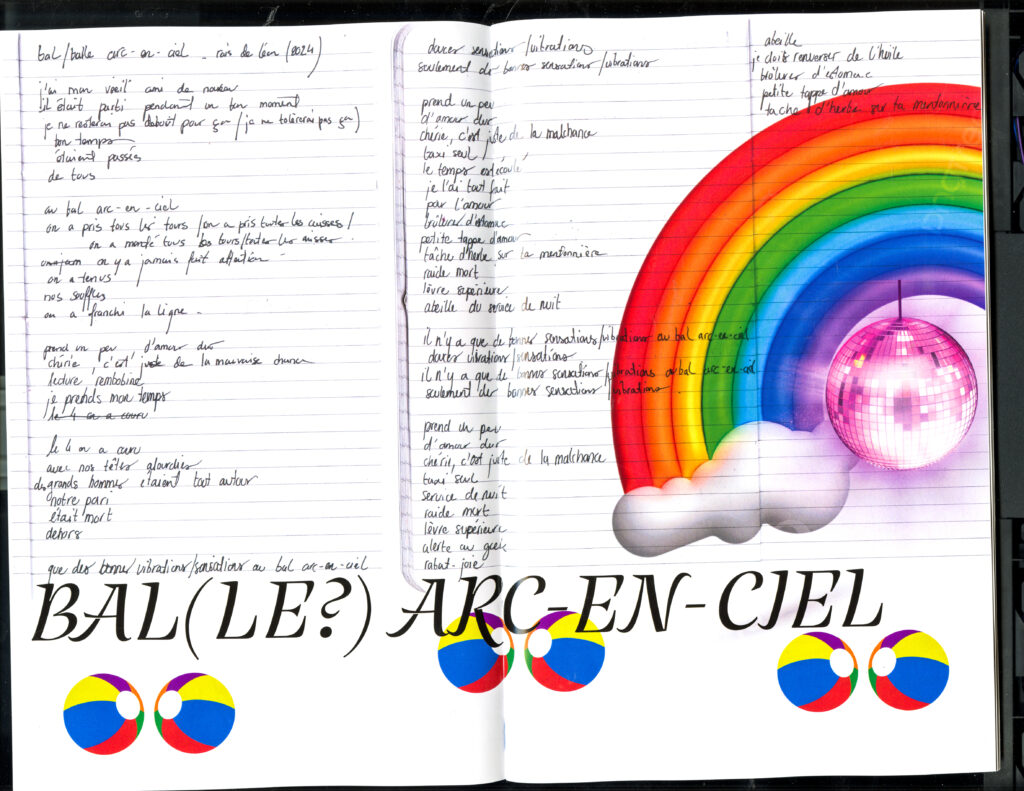 bal/balle arc-en-ciel - rois de léon (2024)
j'ai mon vieil ami de nouveau
il était parti pendant un bon moment
je ne resterai pas debout pour ça / (je ne tolérerai pas ça)
bon temps
étaient passés
de tous
au bal arc-en-ciel
on a pris tous les tours / on a pris toutes les cuisses /
on a mangé tous les tours / toutes les cuisses
on y a jamais fait attention
on a tenus
nos souffles
on a franchi la ligne.
prend un peu d'amour dur
chérie, c'est juste de la mauvaise chance
lecture rembobiné
je prends mon temps
le 4 on a couru
le 4 on a couru
avec nos têtes alourdies
des grands hommes étaient tout autour
notre pari
était mort
dehors
que des bonnes vibrations/sensations au bal arc-en-ciel
dures sensations/vibrations
seulement de bonnes sensations/vibrations
prend un peu
d'amour dur
chérie, c'est juste de la malchance
taxi seul
le temps est écoulé
je l'ai tout fait
par l'amour
brûleur d'estomac
petite tappe d'amour
tâche d'herbe sur ta mentonnière
raide mort
lèvre supérieure
abeille du service de nuit
il n'y a que de bonnes sensations/vibrations au bal arc-en-ciel
dures vibrations/sensations
il n'y a que de bonnes sensations/vibrations au bal arc-en-ciel
seulement de bonnes sensations/vibrations
prend un peu
d'amour dur
chérie, c'est juste de la malchance
taxi seul
service de nuit
raide mort
lèvre supérieure
alerte au geek
rabat-joie
abeille
je dois renverser de l'huile
brûleur d'estomac
petite tappe d'amour
tache d'herbe sur ta mentonnière
BAL(LE?) ARC-EN-CIEL